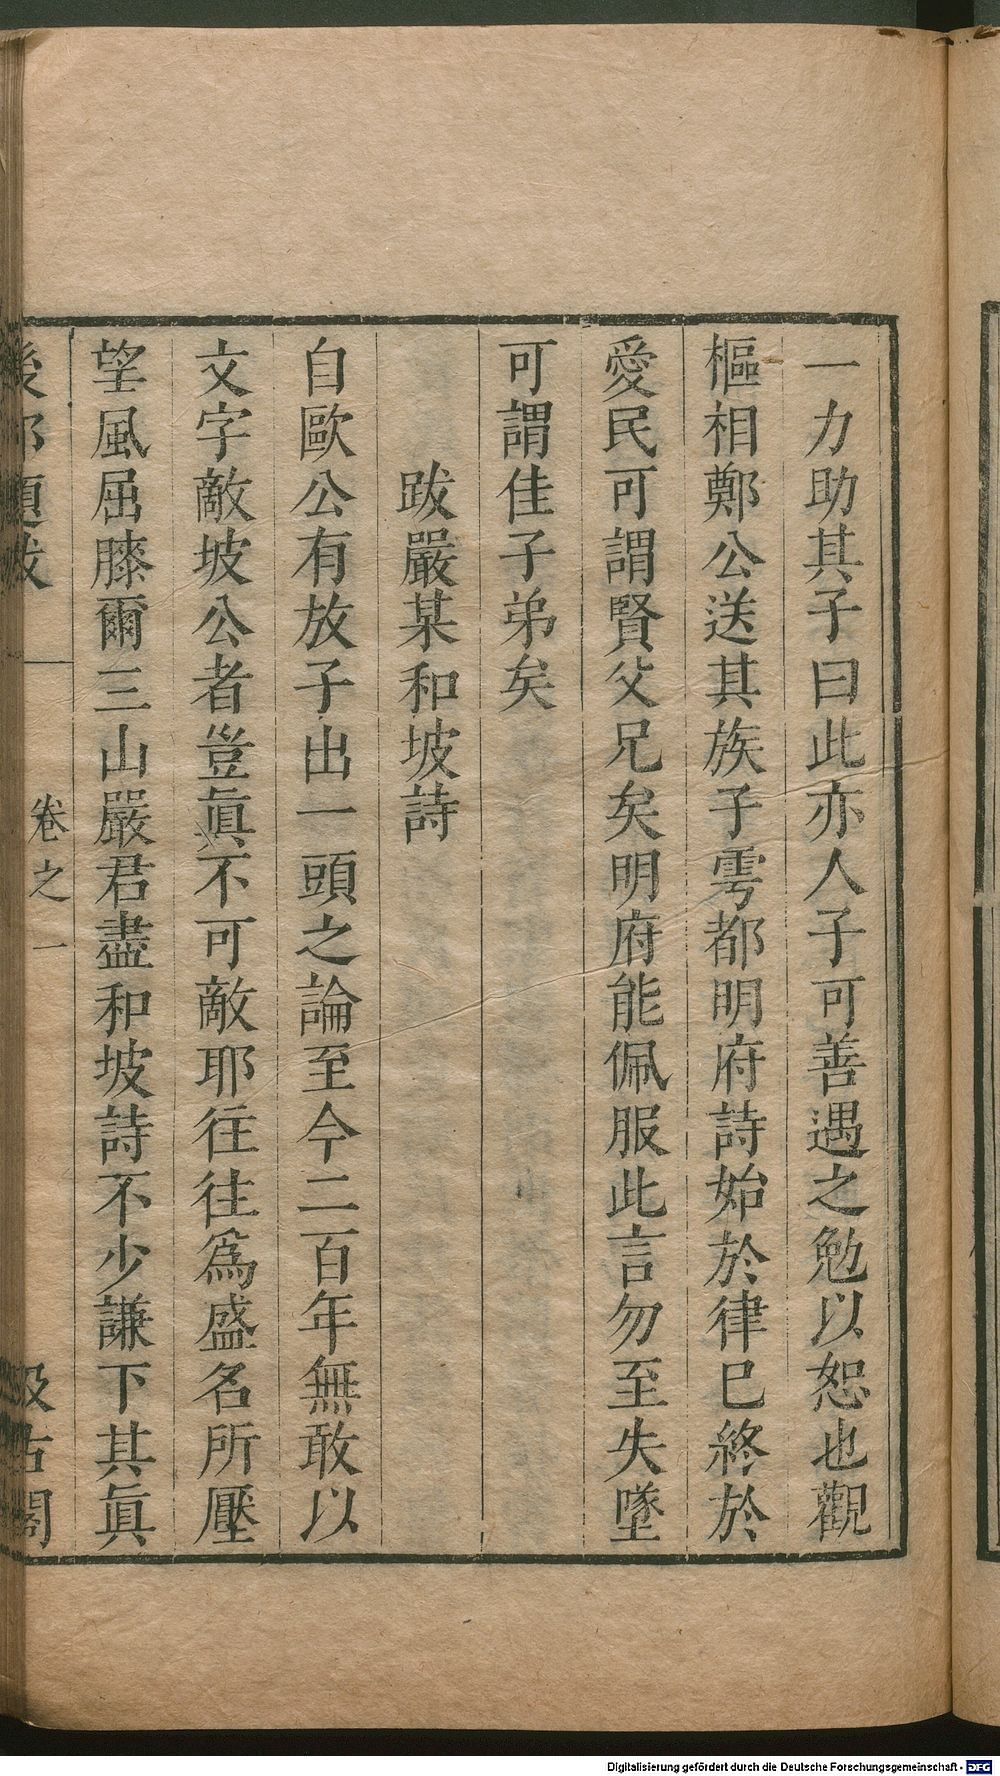 一力助其子曰此亦人子可善遇之勉以恕也觀
樞相鄭公送其族子雩都明府詩始於律巳終於
愛民可謂賢父兄矣明府能佩服此言勿至失墜
可謂佳子弟矣
跋嚴某和坡詩
自歐公有放子出一頭之論至今二百年無敢以
文字敵坡公者豈眞不可敵耶往往爲盛名所壓
望風屈膝爾三山嚴君盡和坡詩不少謙下其眞
後邨題跋 卷之一 汲古閣
Digitalisierung gefördert durch die Deutsche Forschungsgemeinschaft - DFG